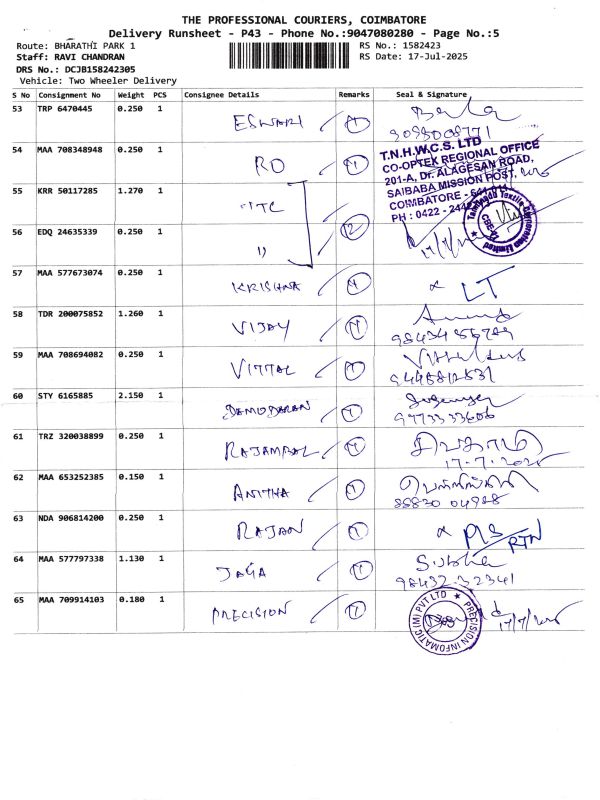 THE PROFESSIONAL COURIERS, COIMBATORE
Delivery Runsheet - P43 - Phone No.:9047080280 - Page No.:5
Route: BHARATHI PARK 1
RS No.: 1582423
Staff: RAVI CHANDRAN
RS Date: 17-Jul-2025
DRS No.: DCJB158242305
Vehicle: Two Wheeler Delivery
S No Consignment No Weight PCS Consignee Details Remarks Seal & Signature
53 TRP 6470445 0.250 1 ESWARI
54 MAA 708348948 0.250 1 RO
T.N.H.W.C.S. LTD
CO-OPTEX REGIONAL OFFICE
201-A, Dr. ALAGESAN ROAD,
SAIBABA MISSION POST,
COIMBATORE - 641
PH : 0422 - 244
55 KRR 50117285 1.270 1 ITC
56 EDQ 24635339 0.250 1 ''
57 MAA 577673074 0.250 1 KRISHNA LT
58 TDR 200075852 1.260 1 VIJAY
59 MAA 708694082 0.250 1 VITTAL
9448812537
60 STY 6165885 2.150 1 DAMODARAN
9773333606
61 TRZ 320038899 0.250 1 RAJAMBAL
17-7-2025
62 MAA 653252385 0.150 1 ANITHA
88830 04988
63 NDA 906814200 0.250 1 RAJAN RTN
64 MAA 577797338 1.130 1 JAGA
98432 32341
65 MAA 709914103 0.180 1 PRECISION
PRECISION INFOMATIC (M) PVT LTD